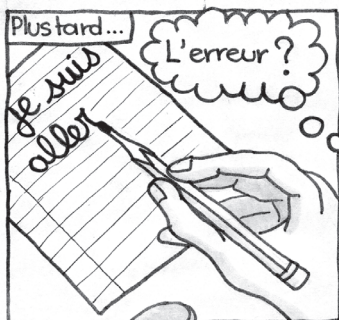 Plus tard...
L'erreur ?
je suis
aller